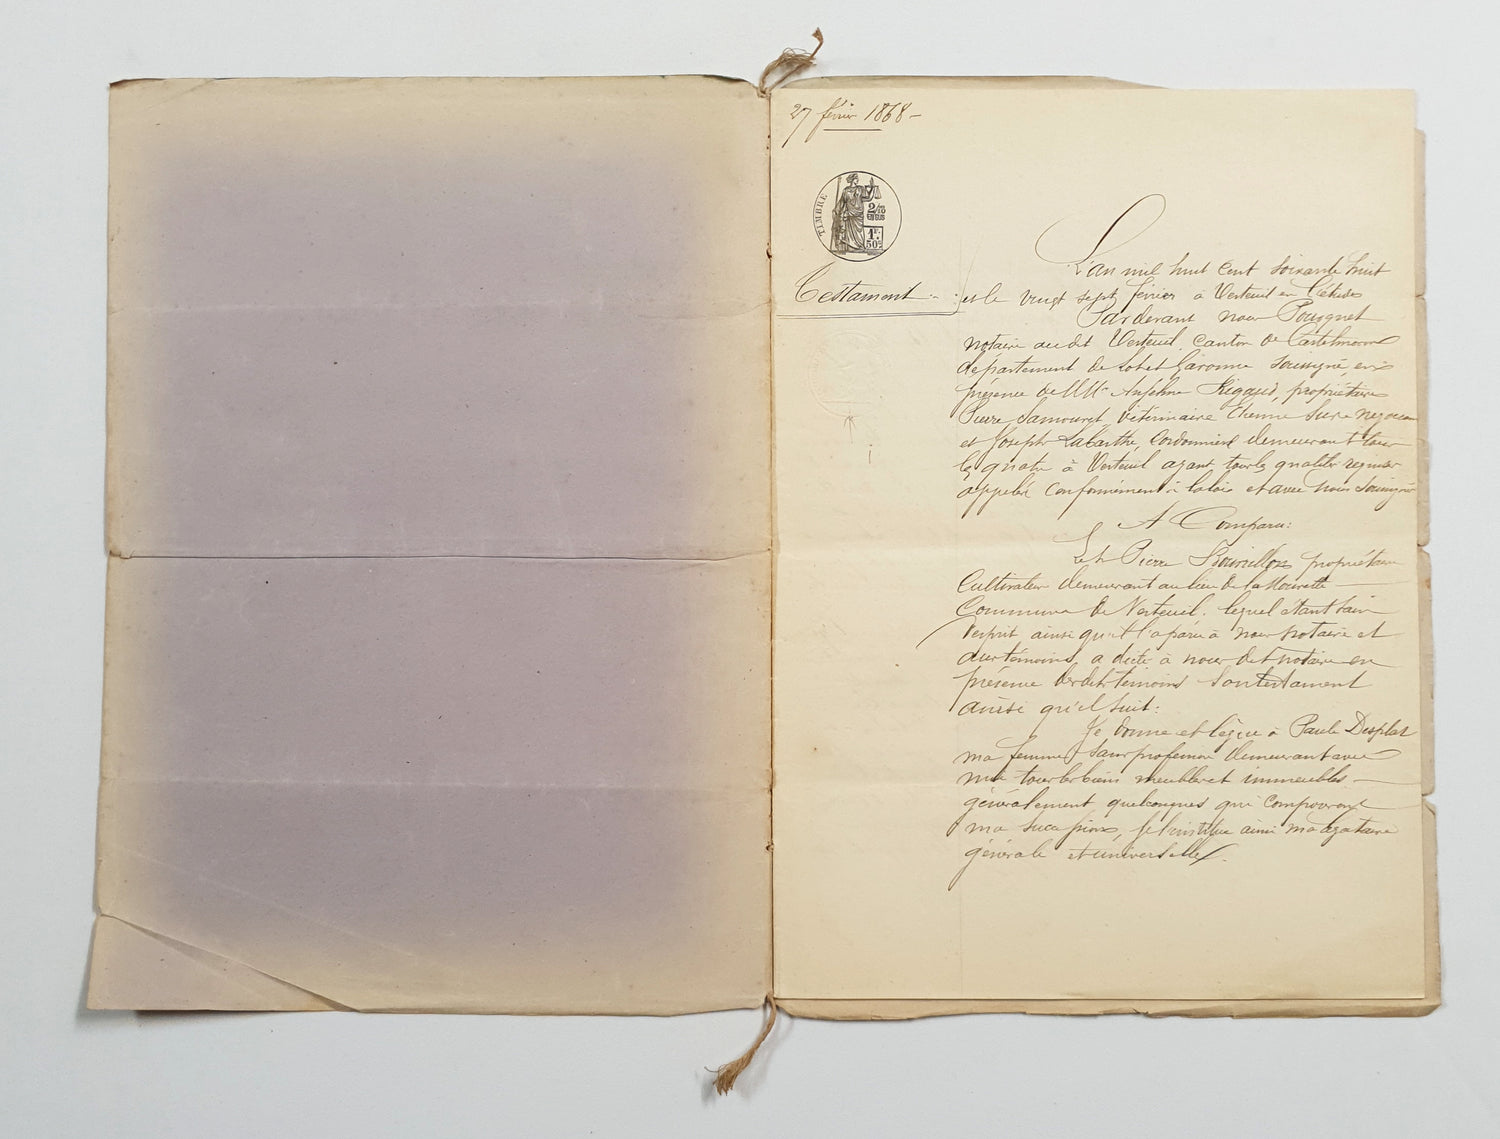 27 février 1868 -
TIMBRE
2/10
EN SUS
1F.
50c.
Testament
L'an mil huit cent soixante huit
et le vingt sept février à Verteuil en l'étude
Pardevant nous Pourquet
notaire audit Verteuil, canton de Castelmoron
département de Lot et Garonne soussigné, en
présence de MM. Anselme Rigaud, propriétaire
Pierre Samouret, vétérinaire Etienne
et Joseph Labarthe, cordonnier demeurant tous
les quatre à Verteuil ayant tous les qualités requises
appelés conformément à la loi et avec nous soussignés
A Comparu:
Pierre propriétaire
Cultivateur demeurant au lieu de
Commune de Verteuil. lequel étant sain
d'esprit ainsi qu'il l'a paru à nous notaire et
aux témoins, a dicté à nous dit notaire en
présence desdits témoins son testament
ainsi qu'il suit:
Je donne et lègue à Paule Desplat
ma femme sans profession demeurant avec
moi tous les biens meubles et immeubles
généralement quelconques qui composeront
ma succession, je l'institue ainsi ma légataire
générale et universelle.